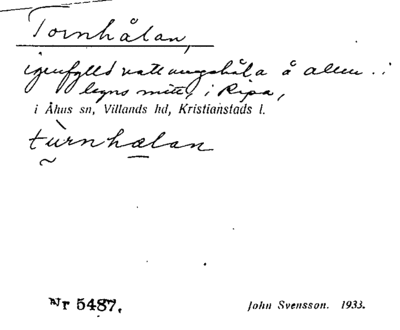 Tornhålan,
igenfylld vattningshåla å allm. i
byns mitt, i Ripa,
i Åhus sn, Villands hd, Kristianstads l.
tùrnhalan
Nr 5487.
John Svensson. 1933.